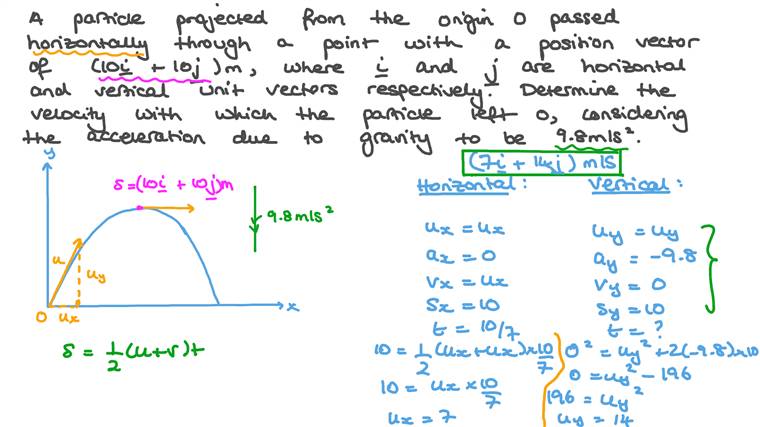 A particle projected from the origin O passed
horizontally through a point with a position vector
of (10i + 10j)m, where i and j are horizontal
and vertical unit vectors respectively. Determine the
velocity with which the particle left O, considering
the acceleration due to gravity to be 9.8m/s².
(7i + 14j) m/s
y
s=(10i + 10j)m
9.8m/s²
u
uy
O
ux
x
s = 1/2 (u+v)t
Horizontal:
ux = ux
ax = 0
vx = ux
sx = 10
t = 10/7
10 = 1/2 (ux+ux)×10/7
10 = ux × 10/7
ux = 7
Vertical:
uy = uy
ay = -9.8
vy = 0
sy = 10
t = ?
0² = uy² + 2(-9.8)×10
0 = uy² - 196
196 = uy²
uy = 14